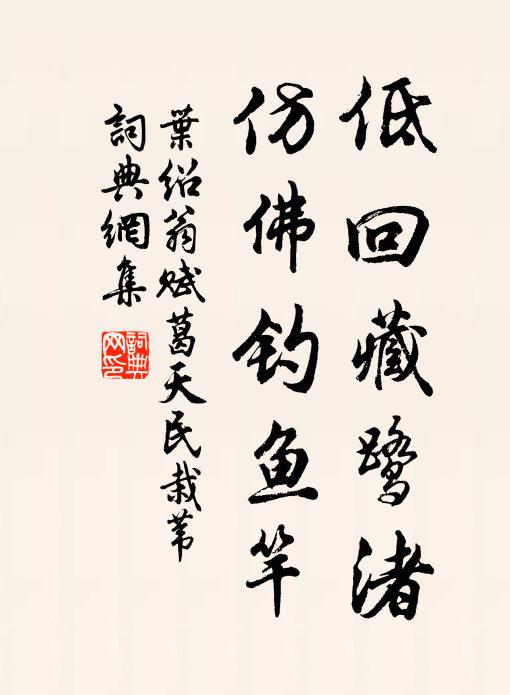 低回藏鹭渚
仿佛钓鱼竿
葉紹翁赋葛天民栽苇
詞典網集
詞典网印